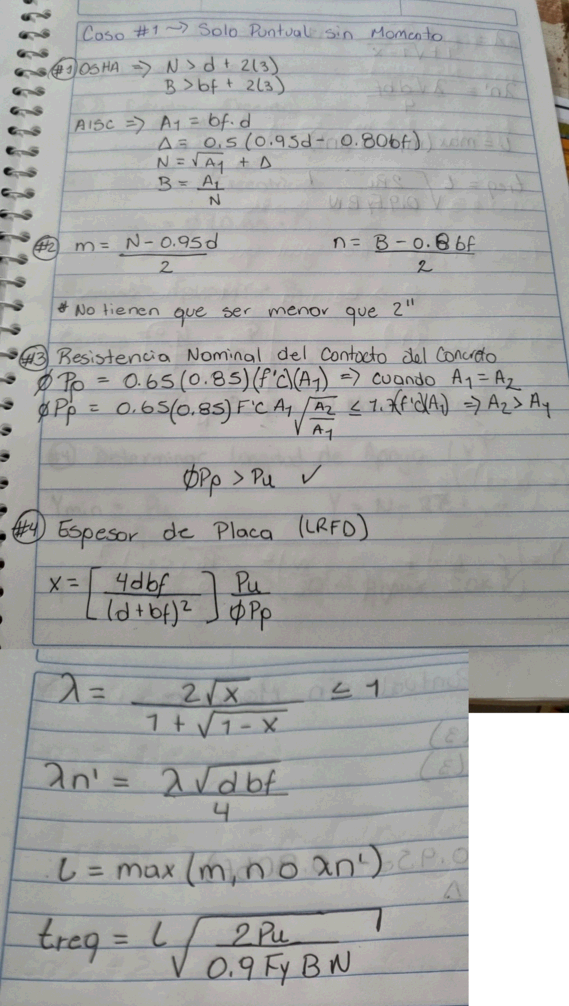 Caso #1 → Solo Puntual sin Momento
#1 OSHA ⇒ N > d + 2(3)
B > bf + 2(3)
AISC ⇒ A1 = bf·d
Δ = 0.5 (0.95d - 0.80bf)
N = √A1 + Δ
B = A1/N
#2 m = (N - 0.95d)/2    n = (B - 0.8bf)/2
* No tienen que ser menor que 2"
#3 Resistencia Nominal del Contacto del Concreto
ØPp = 0.65(0.85)(f'c)(A1) ⇒ cuando A1 = A2
ØPp = 0.65(0.85)F'C A1 √(A2/A1) ≤ 1.7(f'c)(A1) ⇒ A2 > A1
ØPp > Pu ✓
#4 Espesor de Placa (LRFD)
x = [4dbf/(d+bf)²] Pu/ØPp
λ = 2√x/(1 + √1-x) ≤ 1
λn' = λ√dbf/4
l = max (m, n o λn')
treq = l √(2Pu/0.9 Fy B N)